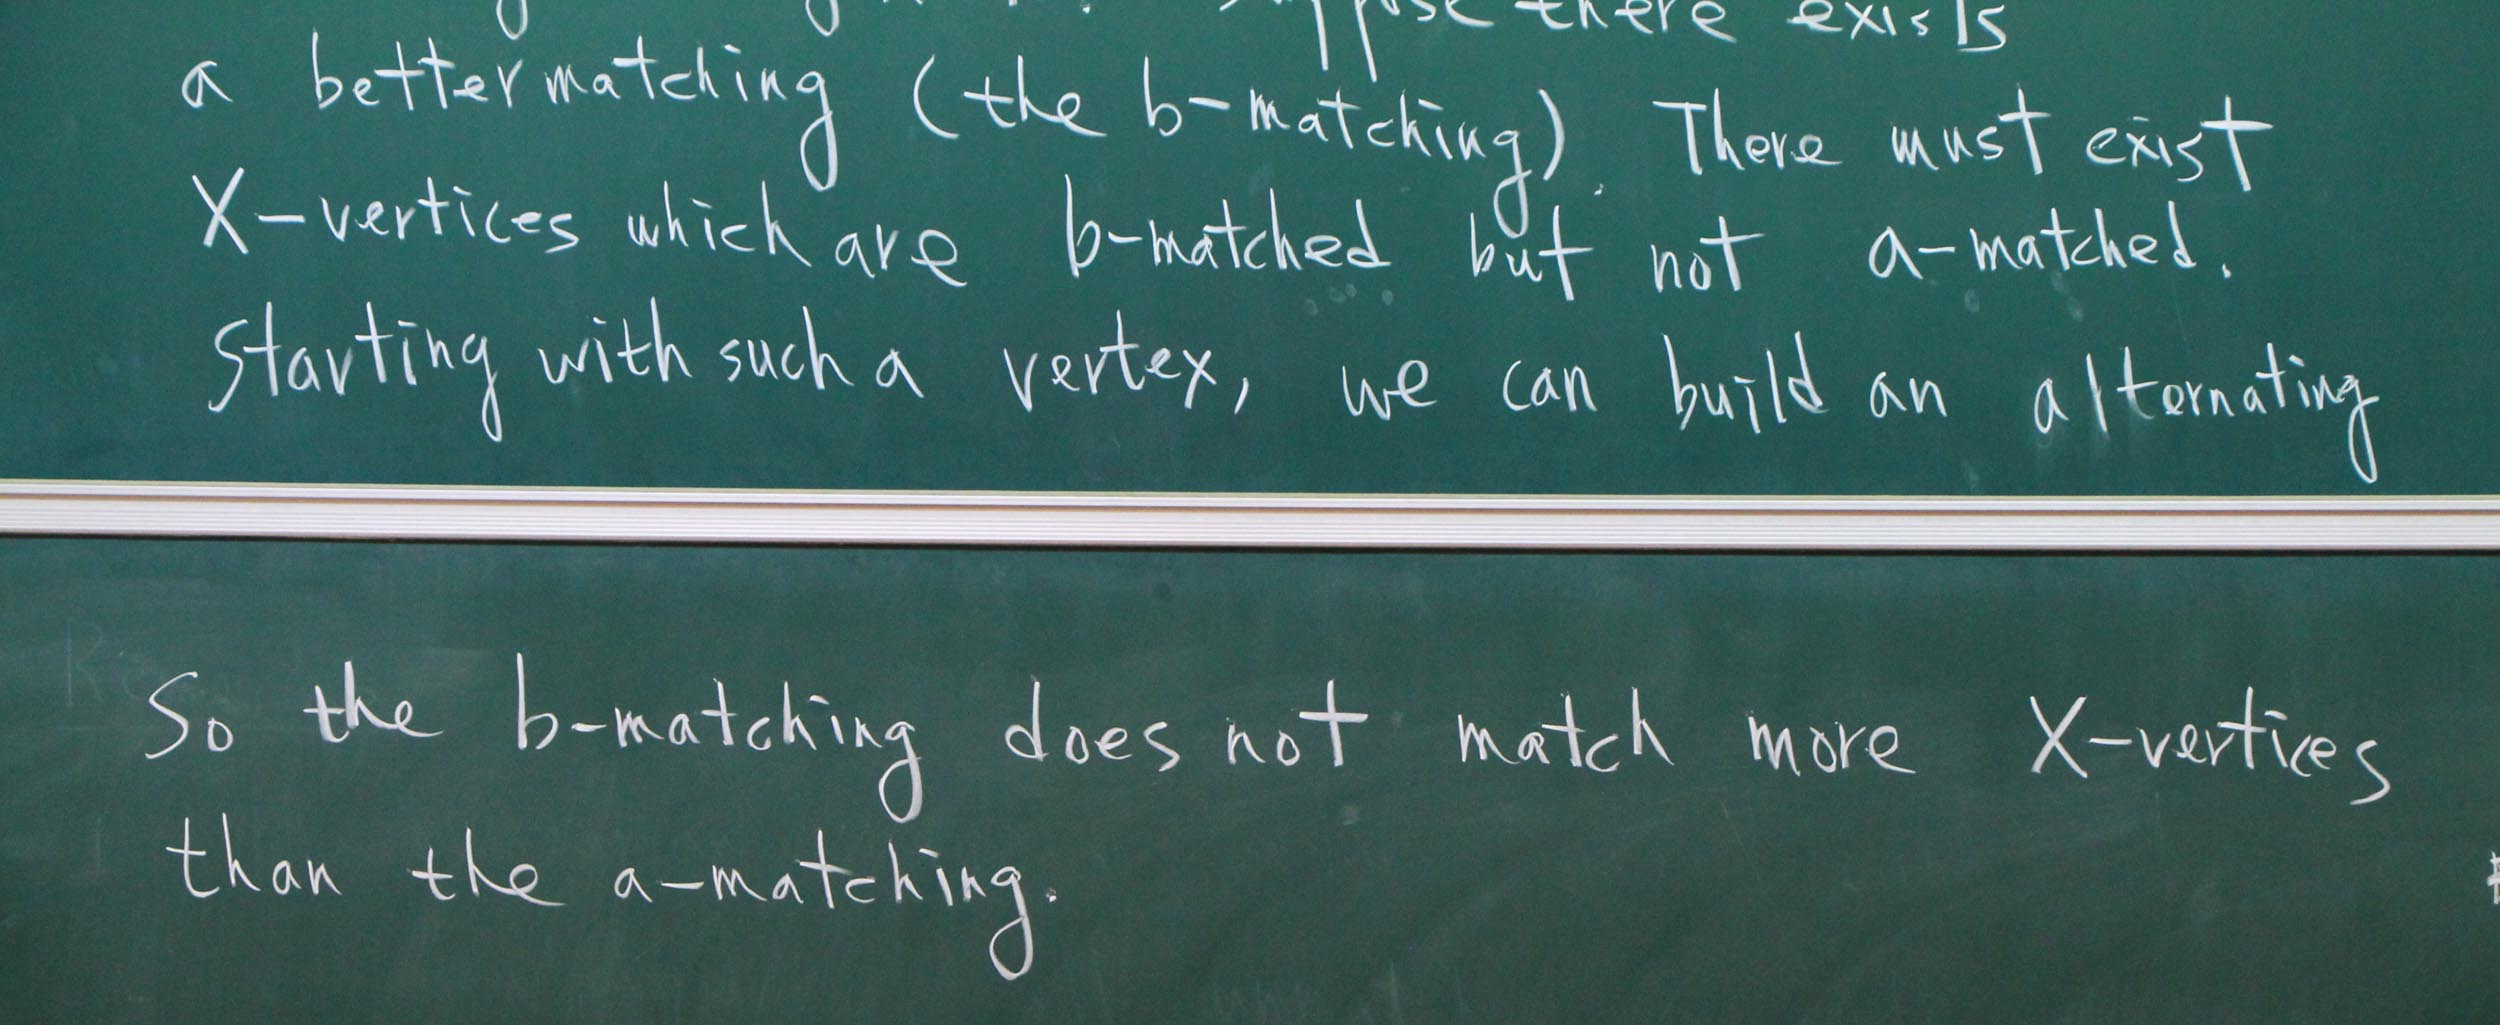 there exists
a better matching (the b-matching). There must exist
X-vertices which are b-matched but not a-matched.
Starting with such a vertex, we can build an alternating
So the b-matching does not match more X-vertices
than the a-matching.